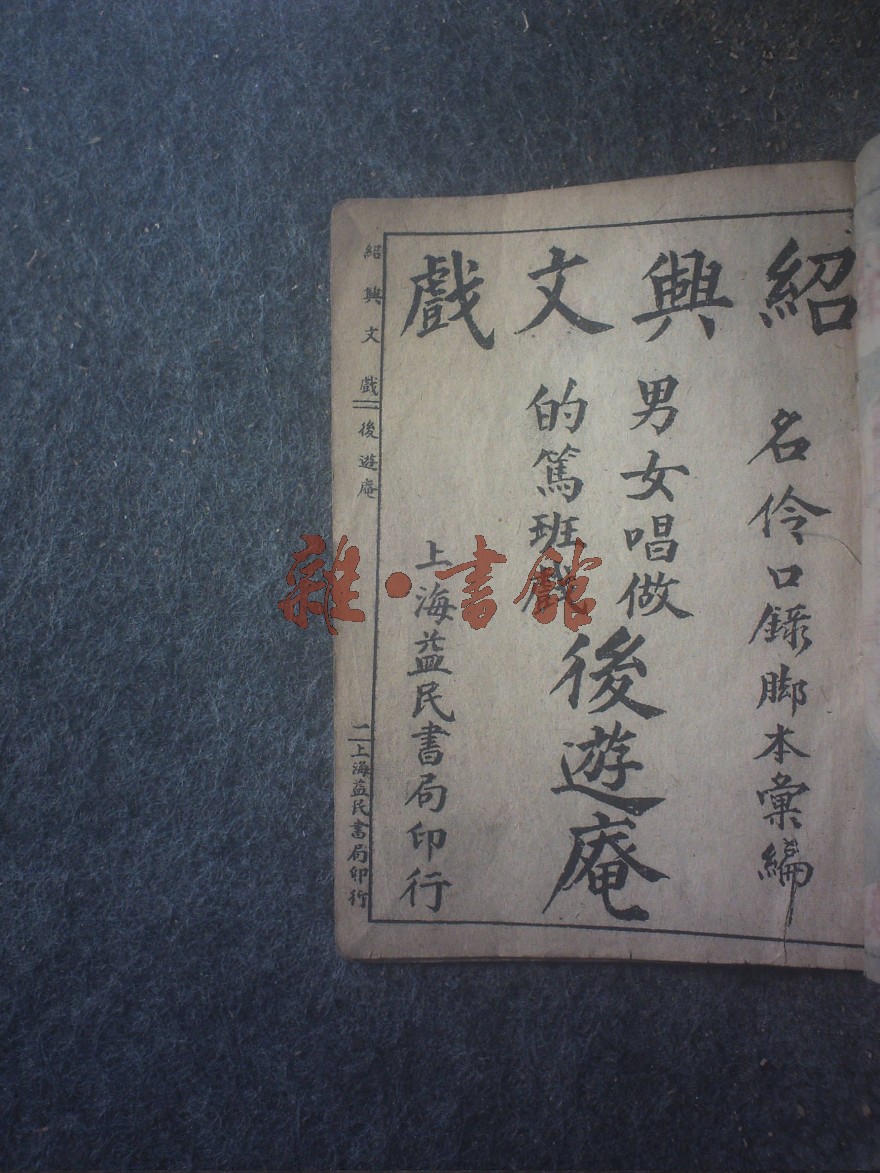 紹興文戲
名伶口錄脚本彙編
男女唱做
的篤班戲
後遊庵
上海益民書局印行
紹興文戲 後遊庵 一 上海益民書局印行
雜·書館